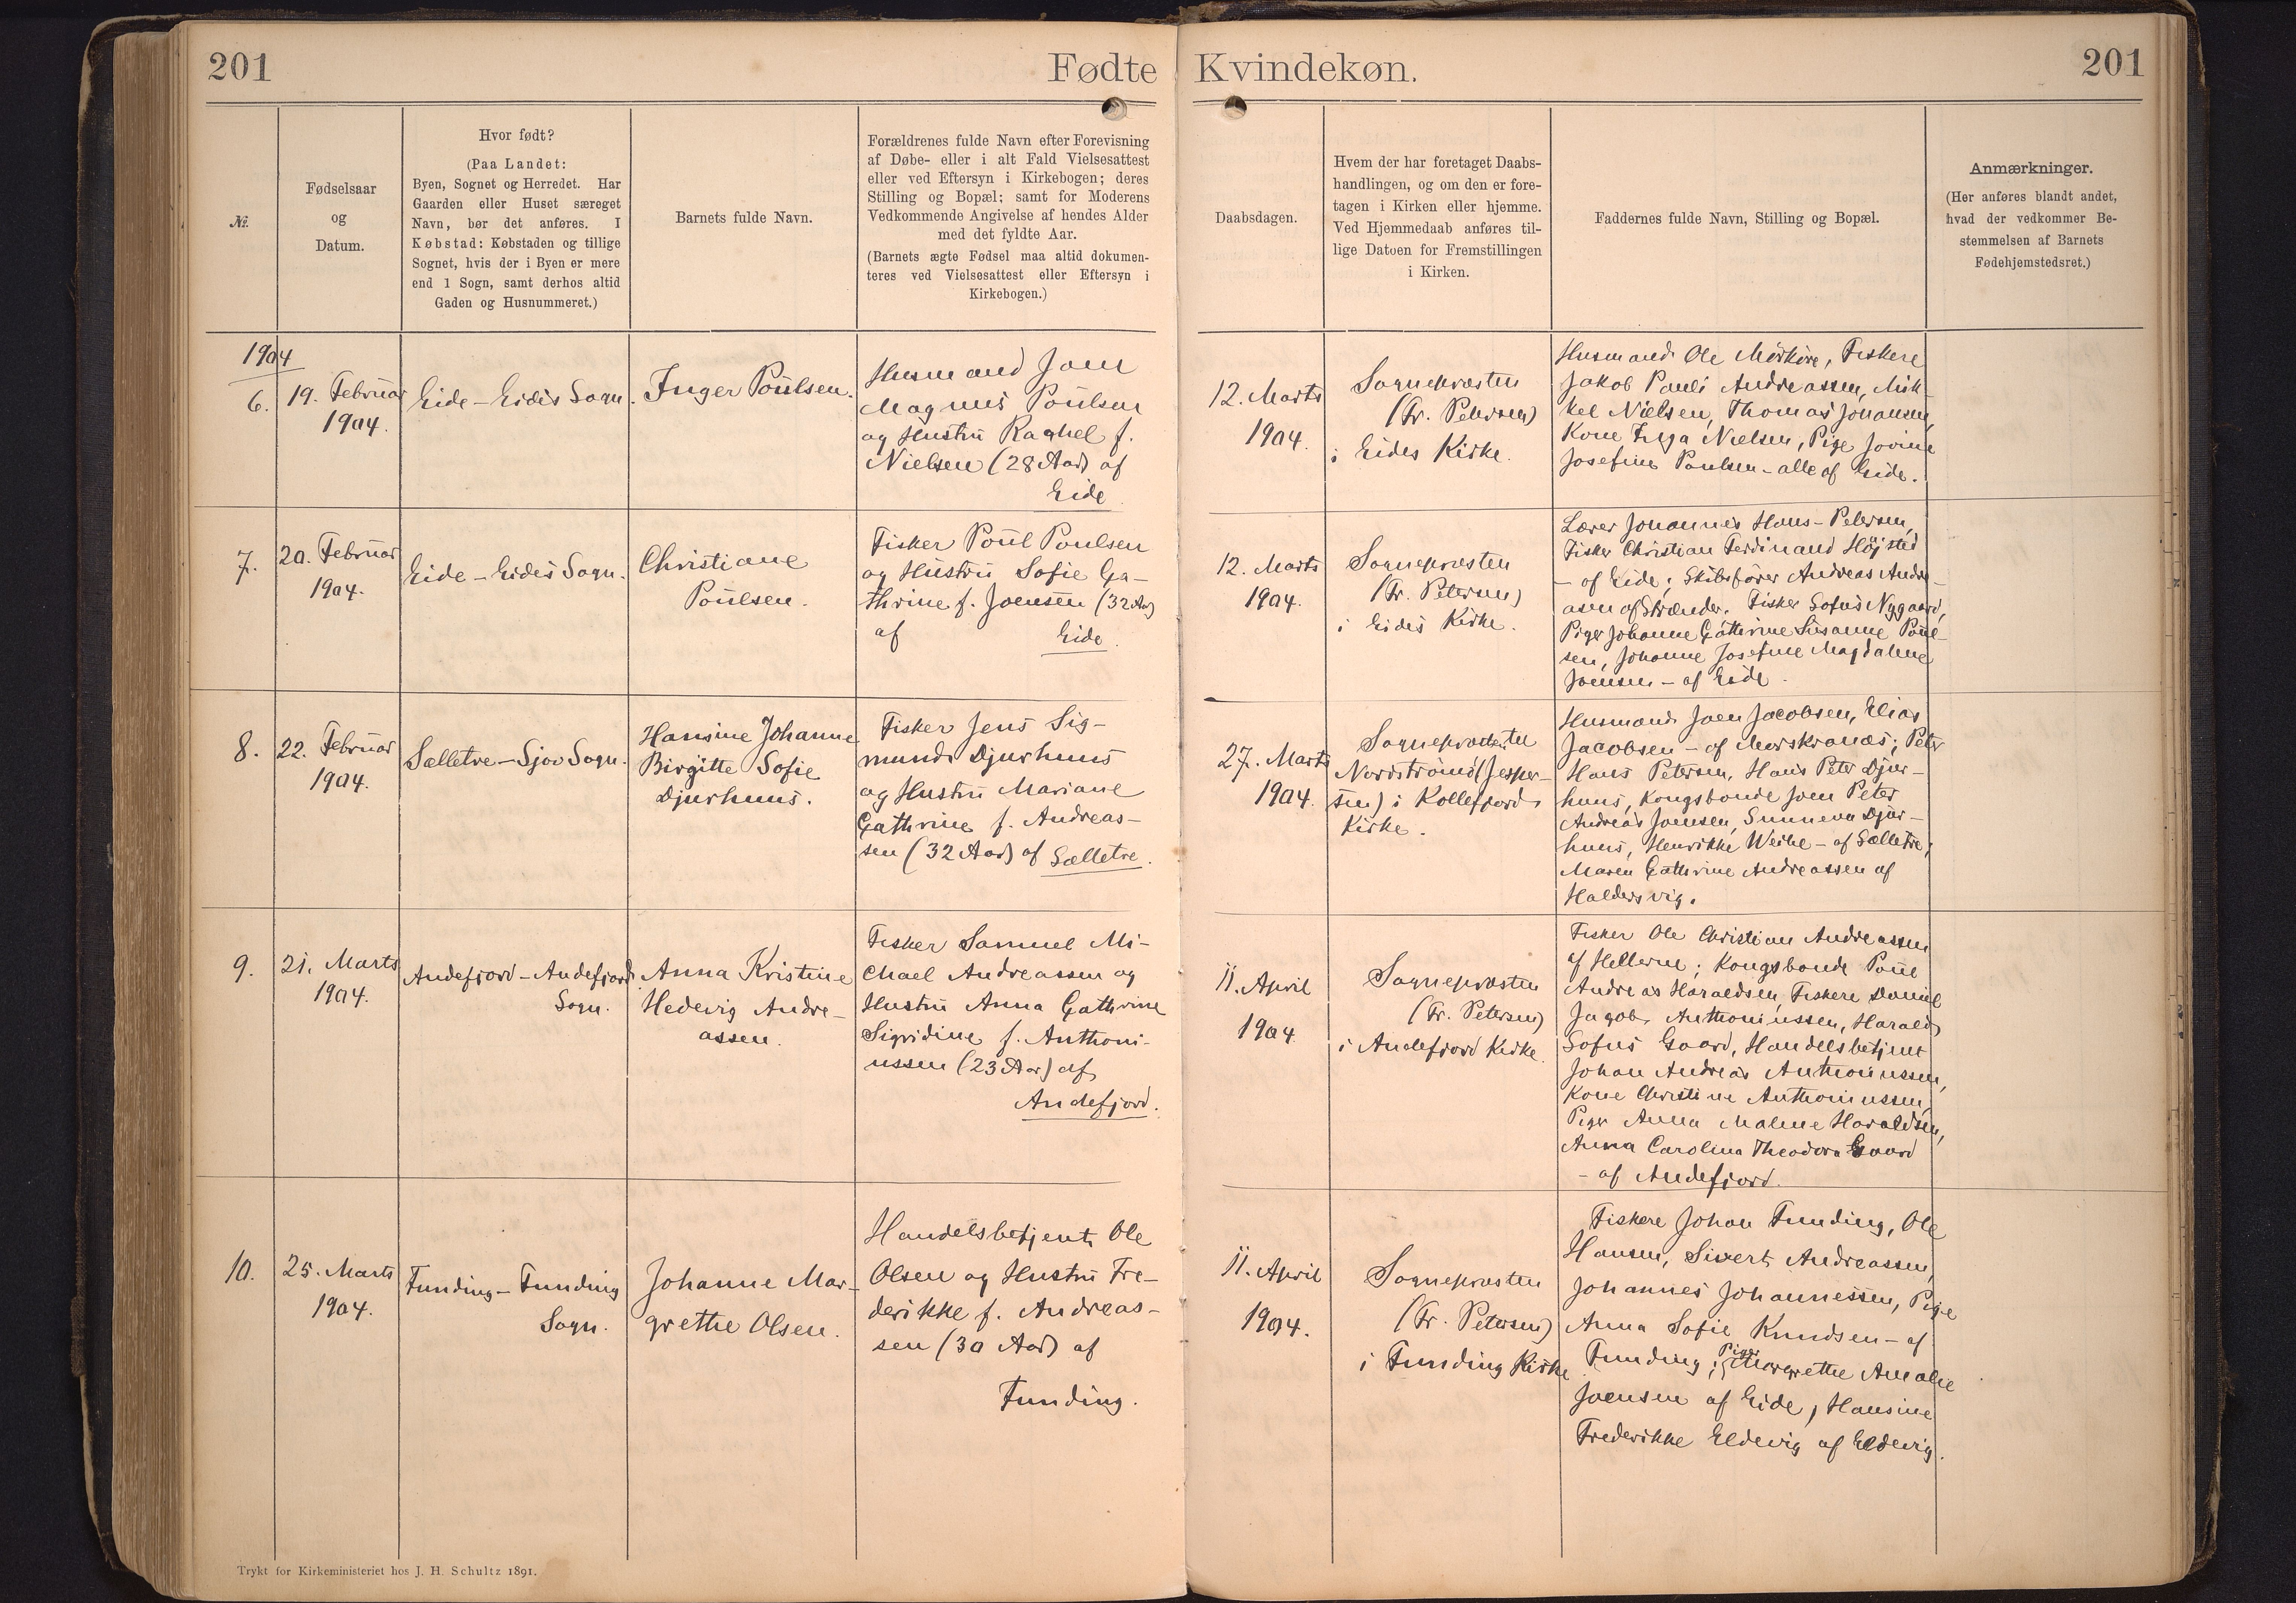 201
Fødte
Kvindekøn.
201
№.
Fødselsaar
og
Datum.
Hvor født?
(Paa Landet:
Byen, Sognet og Herredet. Har
Gaarden eller Huset særeget
Navn, bør det anføres. I
Købstad: Købstaden og tillige
Sognet, hvis der i Byen er mere
end 1 Sogn, samt derhos altid
Gaden og Husnummeret.)
Barnets fulde Navn.
Forældrenes fulde Navn efter Forevisning
af Døbe- eller i alt Fald Vielsesattest
eller ved Eftersyn i Kirkebogen; deres
Stilling og Bopæl; samt for Moderens
Vedkommende Angivelse af hendes Alder
med det fyldte Aar.
(Barnets ægte Fødsel maa altid dokumen-
teres ved Vielsesattest eller Eftersyn i
Kirkebogen.)
Daabsdagen.
Hvem der har foretaget Daabs-
handlingen, og om den er fore-
tagen i Kirken eller hjemme.
Ved Hjemmedaab anføres til-
lige Datoen for Fremstillingen
i Kirken.
Faddernes fulde Navn, Stilling og Bopæl.
Anmærkninger.
(Her anføres blandt andet,
hvad der vedkommer Be-
stemmelsen af Barnets
Fødehjemstedsret.)
1904
6.
19. Februar
1904.
Eide – Eides Sogn.
Inger Poulsen.
Husmand Joen
Magnus Poulsen
og Hustru Raghel f.
Nielsen (28 Aar) af
Eide.
12. Marts
1904.
Sognepræsten
(Fr. Petersen)
i Eides Kirke.
Husmand Ole Mörköre, Fiskere
Jakob Pauli Andreassen, Mik-
kel Nielsen, Thomas Johansen,
Kone Inga Nielsen, Pige Jovine
Josefine Poulsen – alle af Eide.
7.
20. Februar
1904.
Eide – Eides Sogn.
Christiane
Poulsen.
Fisker Poul Poulsen
og Hustru Sofie Ca-
thrine f. Joensen (32 Aar)
af Eide.
12. Marts
1904.
Sognepræsten
(Fr. Petersen)
i Eides Kirke.
Lærer Johannes Hans-Petersen,
Fisker Christian Ferdinand Højsted
– af Eide; Skibsfører Andreas Andre-
asen af Strænder. Fisker Sofus Nygaard,
Piger Johanne Cathrine Susanne Poul-
sen, Johanne Josefine Magdalene
Joensen – af Eide.
8.
22. Februar
1904.
Sælletre – Sjov Sogn.
Hansine Johanne
Birgitte Sofie
Djurhuus.
Fisker Jens Sig-
mund Djurhuus
og Hustru Mariane
Cathrine f. Andreas-
sen (32 Aar) af Sælletre.
27. Marts
1904.
Sognepræsten til
Nordströmø (Jesper-
sen) i Kollefjord
Kirke.
Husmand Joen Jacobsen, Elias
Jacobsen – af Morskranæs; Peter
Hans Petersen, Hans Peter Djur-
huus, Kongsbonde Joen Peter
Andreas Joensen, Sunneva Djur-
huus, Henrikke Weihe – af Sælletre;
Maren Cathrine Andreassen af
Haldersvig.
9.
21. Marts
1904.
Andefjord – Andefjord
Sogn.
Anna Kristine
Hedevig Andre-
assen.
Fisker Samuel Mi-
chael Andreassen og
Hustru Anna Cathrine
Sigridine f. Anthoni-
ussen (23 Aar) af
Andefjord.
11. April
1904
Sognepræsten
(Fr. Petersen)
i Andefjord Kirke.
Fisker Ole Christian Andreassen
af Hellerne; Kongsbonde Poul
Andreas Haraldsen, Fiskere Daniel
Jacob Anthoniussen, Harald
Sofus Gaard, Handelsbetjent
Johan Andreas Anthoniussen,
Kone Christine Anthoniussen,
Piger Anna Malene Haraldsen,
Anna Carolina Theodora Gaard
– af Andefjord.
10.
25. Marts
1904.
Funding – Funding
Sogn.
Johanne Mar-
grethe Olsen.
Handelsbetjent Ole
Olsen og Hustru Fre-
derikke f. Andreas-
sen (30 Aar) af
Funding.
11. April
1904.
Sognepræsten
(Fr. Petersen)
i Funding Kirke
Fiskere Johan Funding, Ole
Hansen, Sivert Andreassen,
Johannes Johannessen, Pige
Anna Sofie Knudsen – af
Funding; Piger Margrethe Amalie
Joensen af Eide, Hansine
Frederikke Eldevig af Eldevig.
Trykt for Kirkeministeriet hos J. H. Schultz 1891.